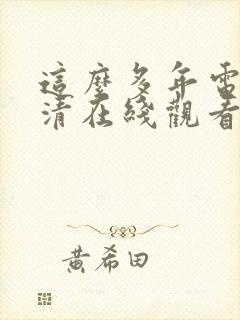 這麼多年電
清在綫觀看
黃希田